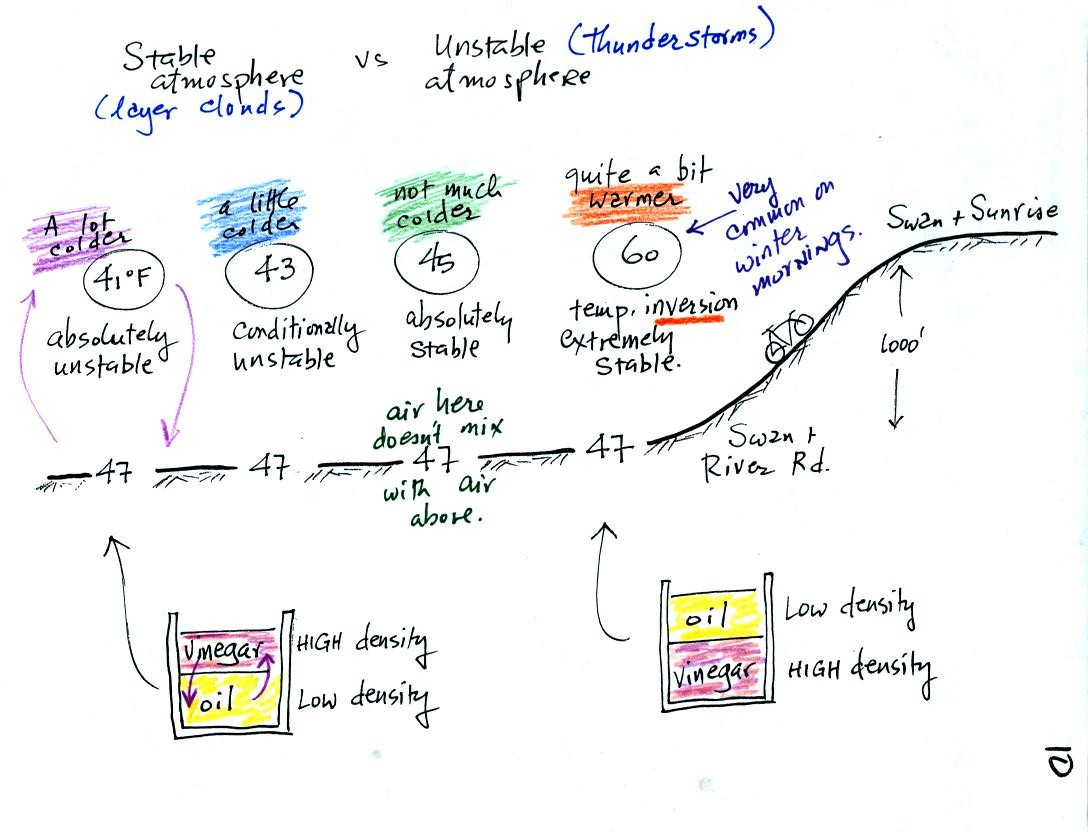 Stable
atmosphere
(layer clouds)
vs
Unstable (thunderstorms)
atmosphere
A lot
colder
41°F
absolutely
unstable
a little
colder
43
conditionally
unstable
not much
colder
45
absolutely
stable
quite a bit
warmer
60
temp. inversion
extremely
stable.
very
common on
winter
mornings.
Swan + Sunrise
1000'
Swan +
River Rd.
air here
doesn't mix
with air
above.
47
47
47
47
vinegar
oil
HIGH density
Low density
oil
vinegar
Low density
HIGH density